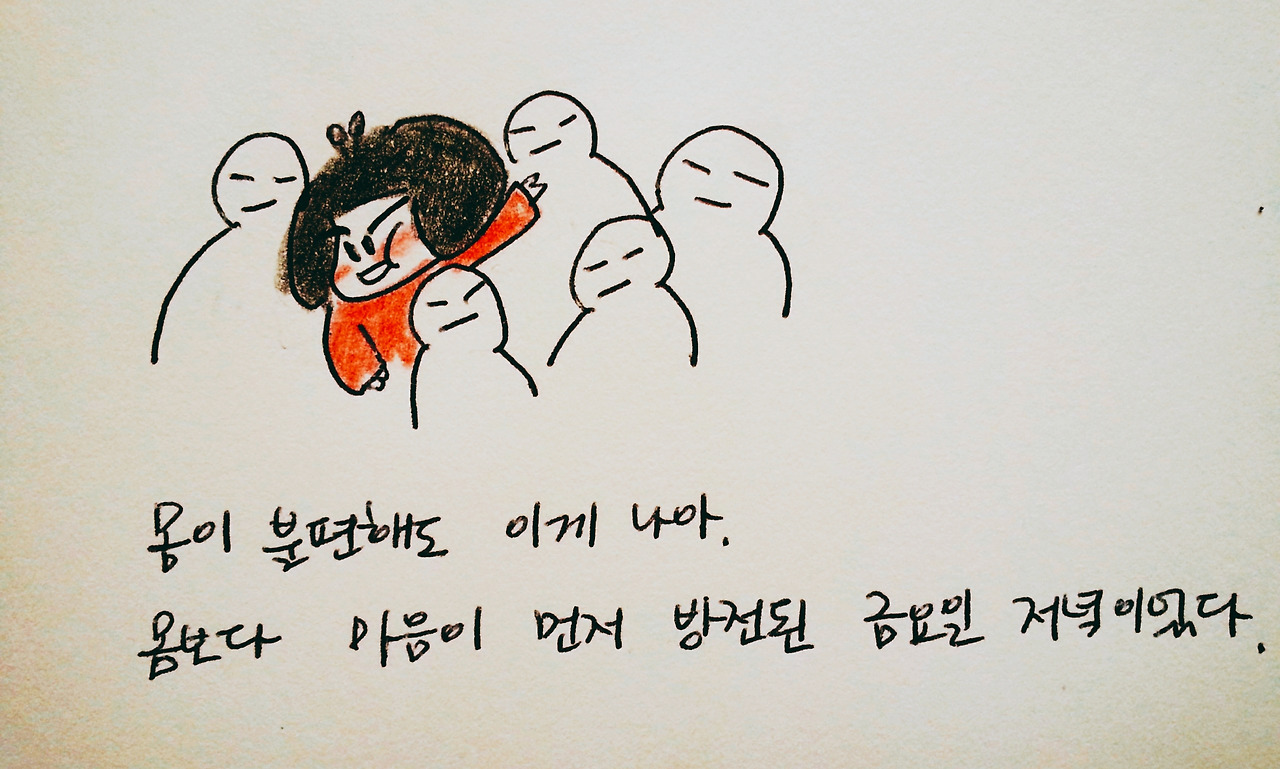 몸이 불편해도 이게 나아.
몸보다 마음이 먼저 방전된 금요일 저녁이었다.